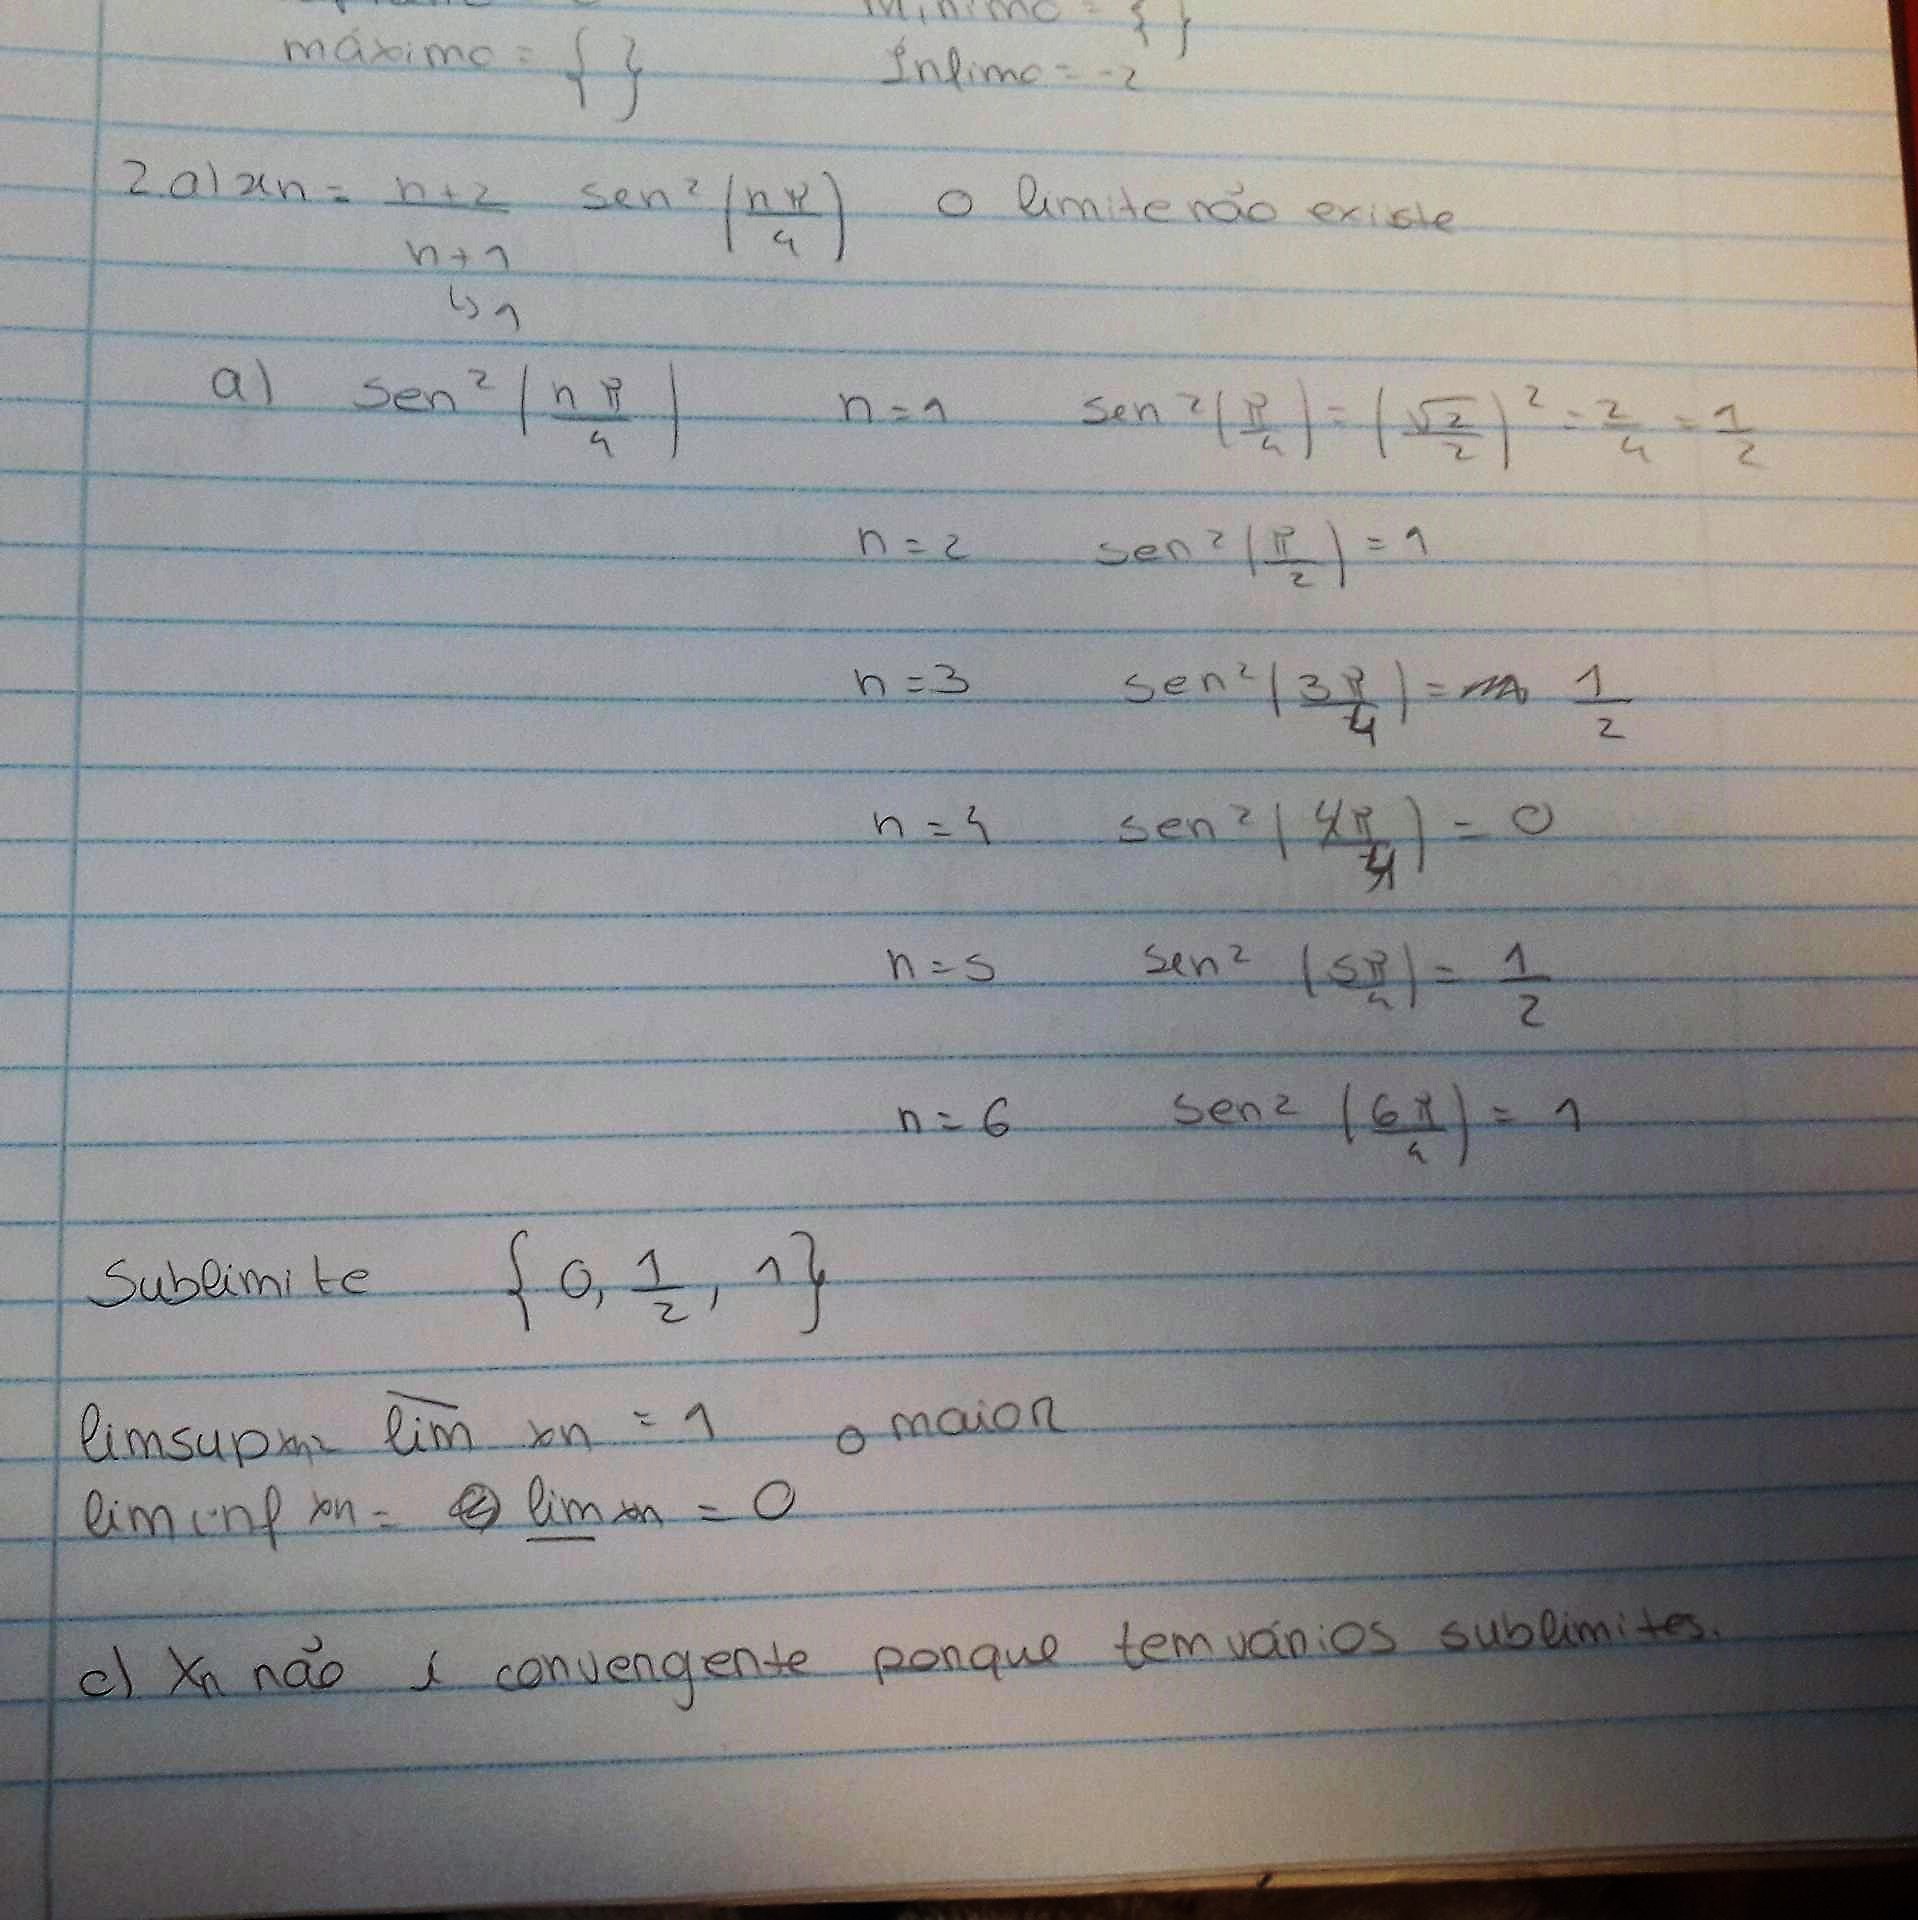 Mínimo = { }
máximo = { }
Ínfimo = -2
2. a) xn = n+2/n+1 sen² (nπ/4) o limite não existe
↳ 1
a) sen² (nπ/4) n=1 sen² (π/4) = (√2/2)² = 2/4 = 1/2
n=2 sen² (π/2) = 1
n=3 sen² (3π/4) = 1/2
n=4 sen² (4π/4) = 0
n=5 sen² (5π/4) = 1/2
n=6 sen² (6π/4) = 1
Sublimite {0, 1/2, 1}
limsup xn = lim xn = 1 o maior
lim inf xn = lim xn = 0
c) Xn não é convergente porque tem vários sublimites.